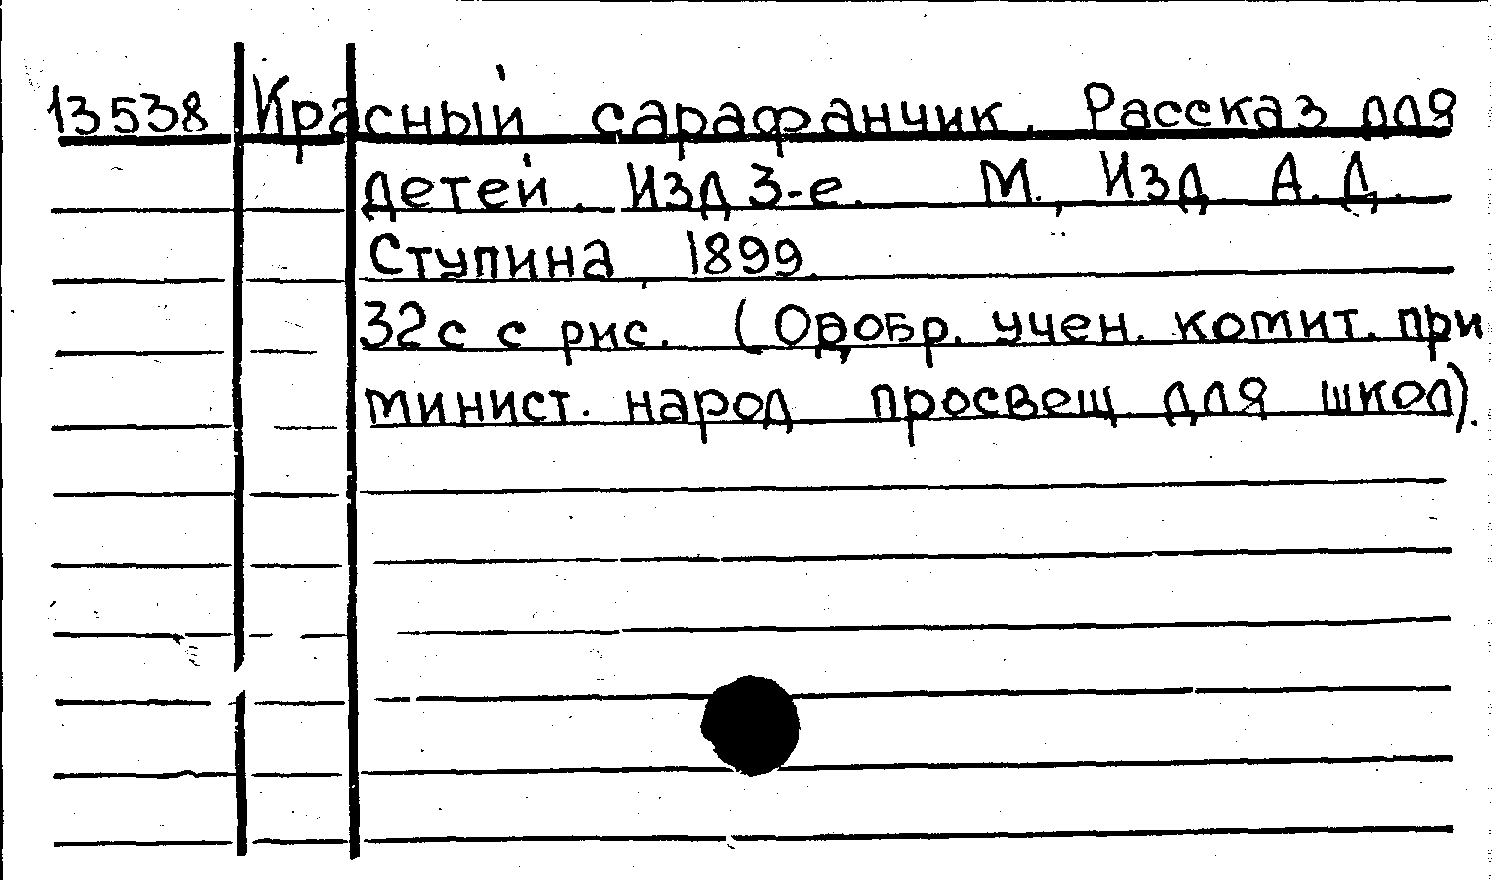 13538 Красный сарафанчик. Рассказ для
детей. Изд 3-е. М., Изд. А. Д.
Ступина, 1899.
32с с рис. (Одобр. учен. комит. при
минист. народ просвещ. для школ).